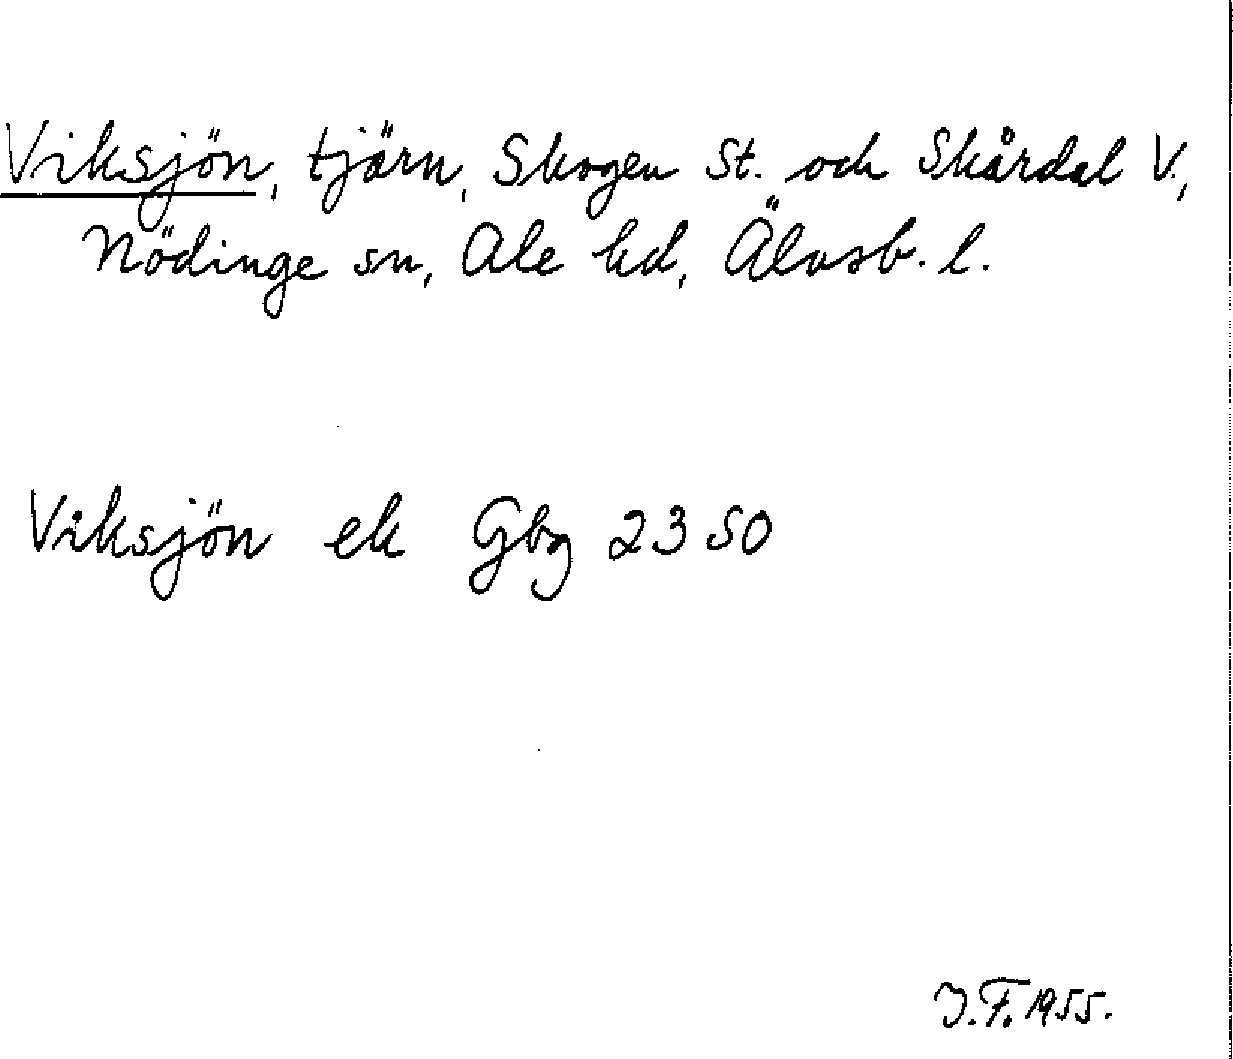 Viksjön, tjärn, Skogen St. och Skårdal V.,
Nödinge sn, Ale hd, Älvsb. l.
Viksjön ek Gbg 2350
J.F. 1955.